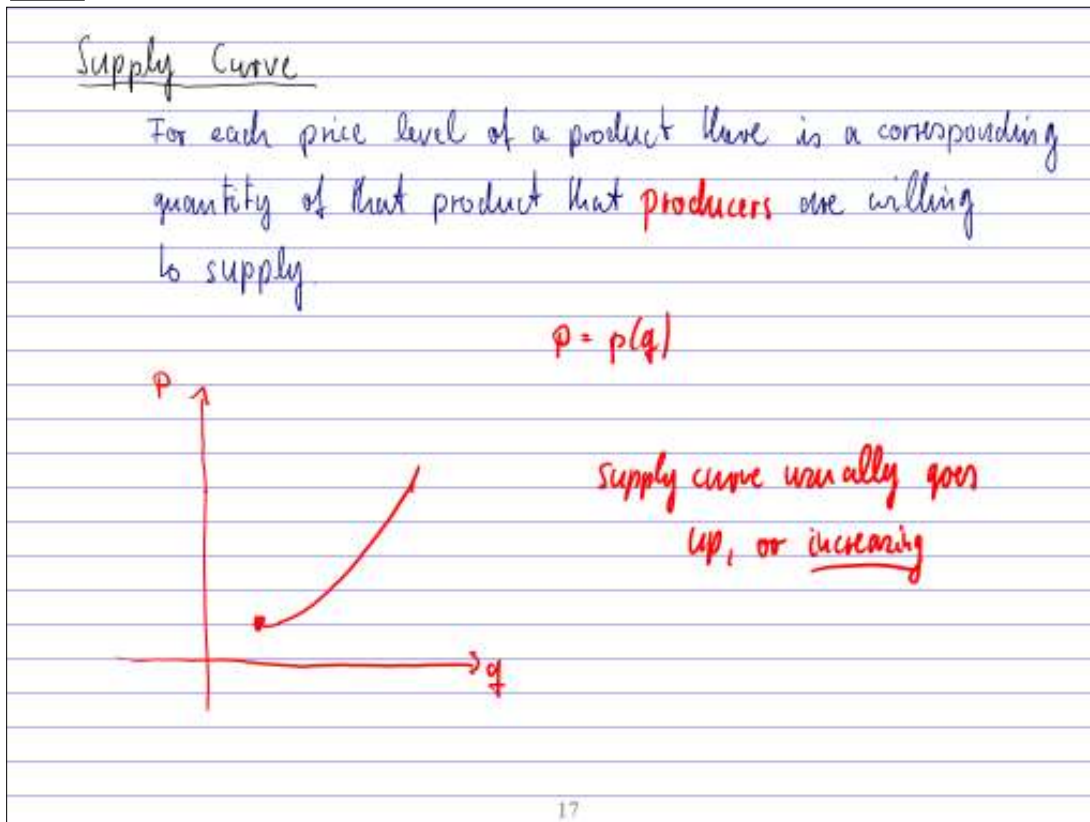 Supply Curve
For each price level of a product there is a corresponding
quantity of that product that producers are willing
to supply.
p = p(q)
P
supply curve usually goes
up, or increasing
q
17